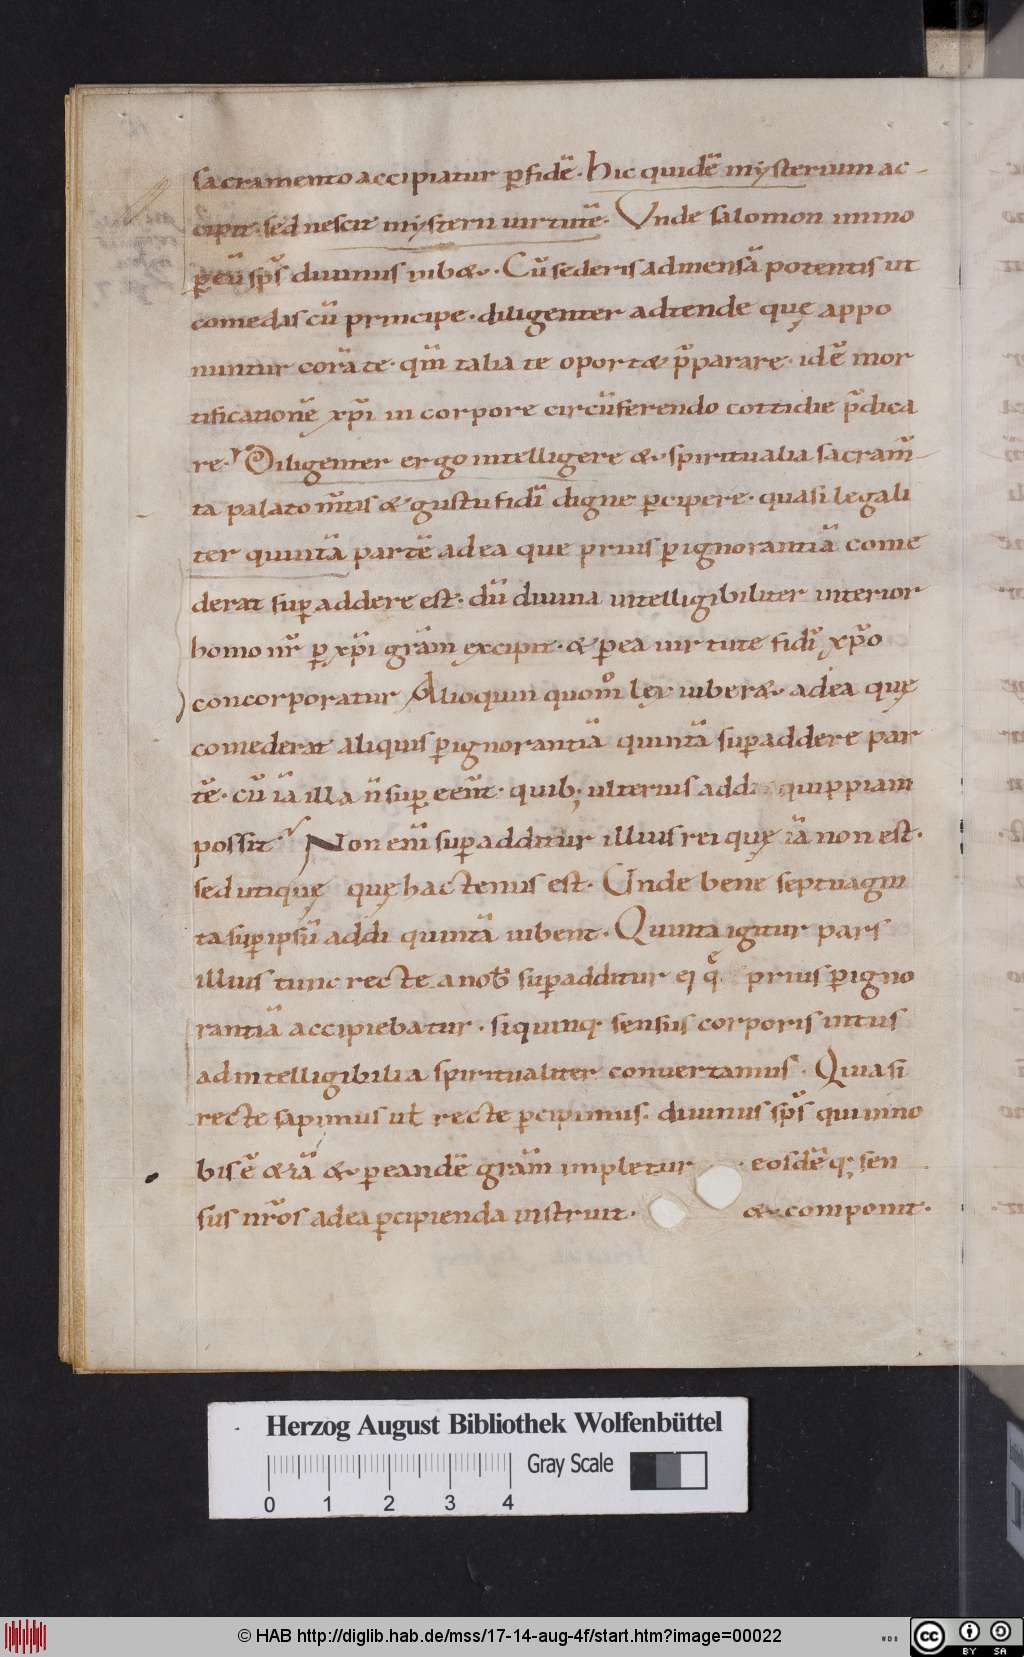 sacramento accipiatur ꝑ fidē. Hic quidē mysterium ac-
cipit. sed nescit mysterii uirtutē. Vnde salomon immo
ꝑ eū sp̄s diuinus iubæ. Cū sederis ad mensā potentis ut
comedas cū principe. diligenter adtende quę appo
nuntur corā te. qm̄ talia te oportæ p̄parare. idē mor
tificationē xp̄i in corpore circūferendo cottidie p̄dica
re. Diligenter ergo intelligere & spiritualia sacram̄
ta palato m̄tis & gustu fidī digne ꝑcipere. quasi legali
ter quintā partē ad ea que prius ꝑ ignorantiā come
derat suꝑaddere est. dū diuina intelligibiliter interior
homo nr̄ ꝑ xp̄i grām excipit. & ꝑ ea uirtute fidī xp̄o
concorporatur Alioquin quom̊ lex iuberæ. ad ea quę
comederat aliquis ꝑ ignorantiā quintā suꝑaddere par
tē. cū iā illa n̄ suꝑeēnt. quib; ulterius addi quippiam
possit Non eni suꝑadditur illius rei quę iā non est.
sed utique quę hactenus est. Unde bene septuagin
ta suꝑ ipsū addi quintā iubent. Quinta igitur pars
illius tunc recte a nob̄ suꝑadditur ei q̊ prius ꝑ igno
rantiā accipiebatur. si quinq; sensus corporis intus
ad intelligibilia spiritualiter conuertamus. Quasi
recte sapimus ut recte ꝑcipimus. diuinus sp̄s qui in no
bis ē & rā & ꝑ eandē grām impletur eosdē q; sen
sus nr̄os ad ea ꝑcipienda instruit. & componit.
Herzog August Bibliothek Wolfenbüttel
Gray Scale
0 1 2 3 4
© HAB http://diglib.hab.de/mss/17-14-aug-4f/start.htm?image=00022
WDB
cc BY SA